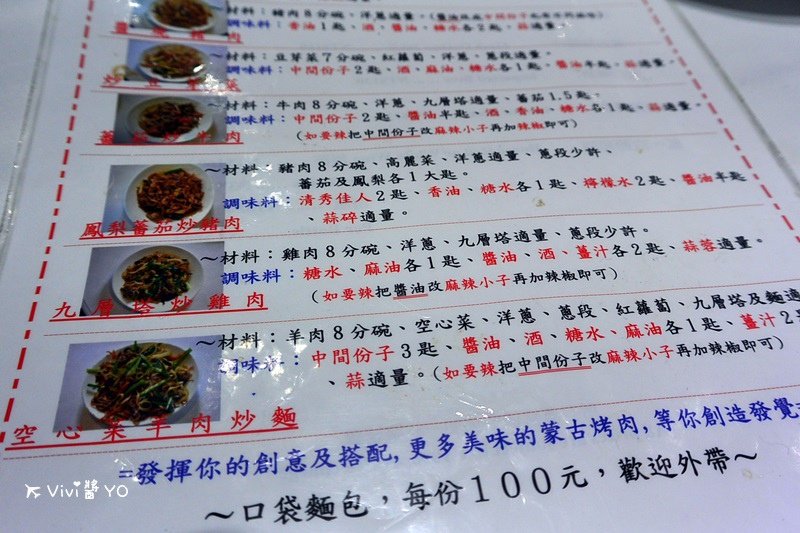 ～材料：豬肉８分碗、洋蔥適量。
調味料：香油１匙、酒、醬油、糖水各２匙、蒜適量。
～材料：豆芽菜７分碗、紅蘿蔔、洋蔥、蔥段適量。
調味料：中間份子２匙、酒、麻油、糖水各１匙、醬油半匙、蒜適量。
～材料：牛肉８分碗、洋蔥、九層塔適量、蕃茄1.5匙。
調味料：中間份子２匙、醬油半匙、酒、香油、糖水各１匙、蒜適量。
蕃茄炒牛肉
（如要辣把中間份子改麻辣小子再加辣椒即可）
～材料：豬肉８分碗、高麗菜、洋蔥適量、蔥段少許、
蕃茄及鳳梨各１大匙。
調味料：清秀佳人２匙、香油、糖水各１匙、檸檬水２匙、醬油半匙
、蒜碎適量。
鳳梨蕃茄炒豬肉
～材料：雞肉８分碗、洋蔥、九層塔適量、蔥段少許。
調味料：糖水、麻油各１匙、醬油、酒、薑汁各２匙、蒜蓉適量。
（如要辣把醬油改麻辣小子再加辣椒即可）
九層塔炒雞肉
～材料：羊肉８分碗、空心菜、洋蔥、蔥段、紅蘿蔔、九層塔及麵適
調味料：中間份子３匙、醬油、酒、糖水、麻油各１匙、薑汁２
、蒜適量。（如要辣把中間份子改麻辣小子再加辣椒即可）
空心菜羊肉炒麵
=發揮你的創意及搭配,更多美味的蒙古烤肉,等你創造發覺
～口袋麵包，每份１００元，歡迎外帶～
Vivi醬YO